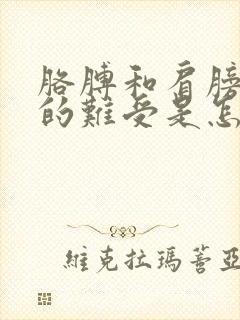 胳膊和肩膀
的難受是怎
維克拉瑪蓍亞